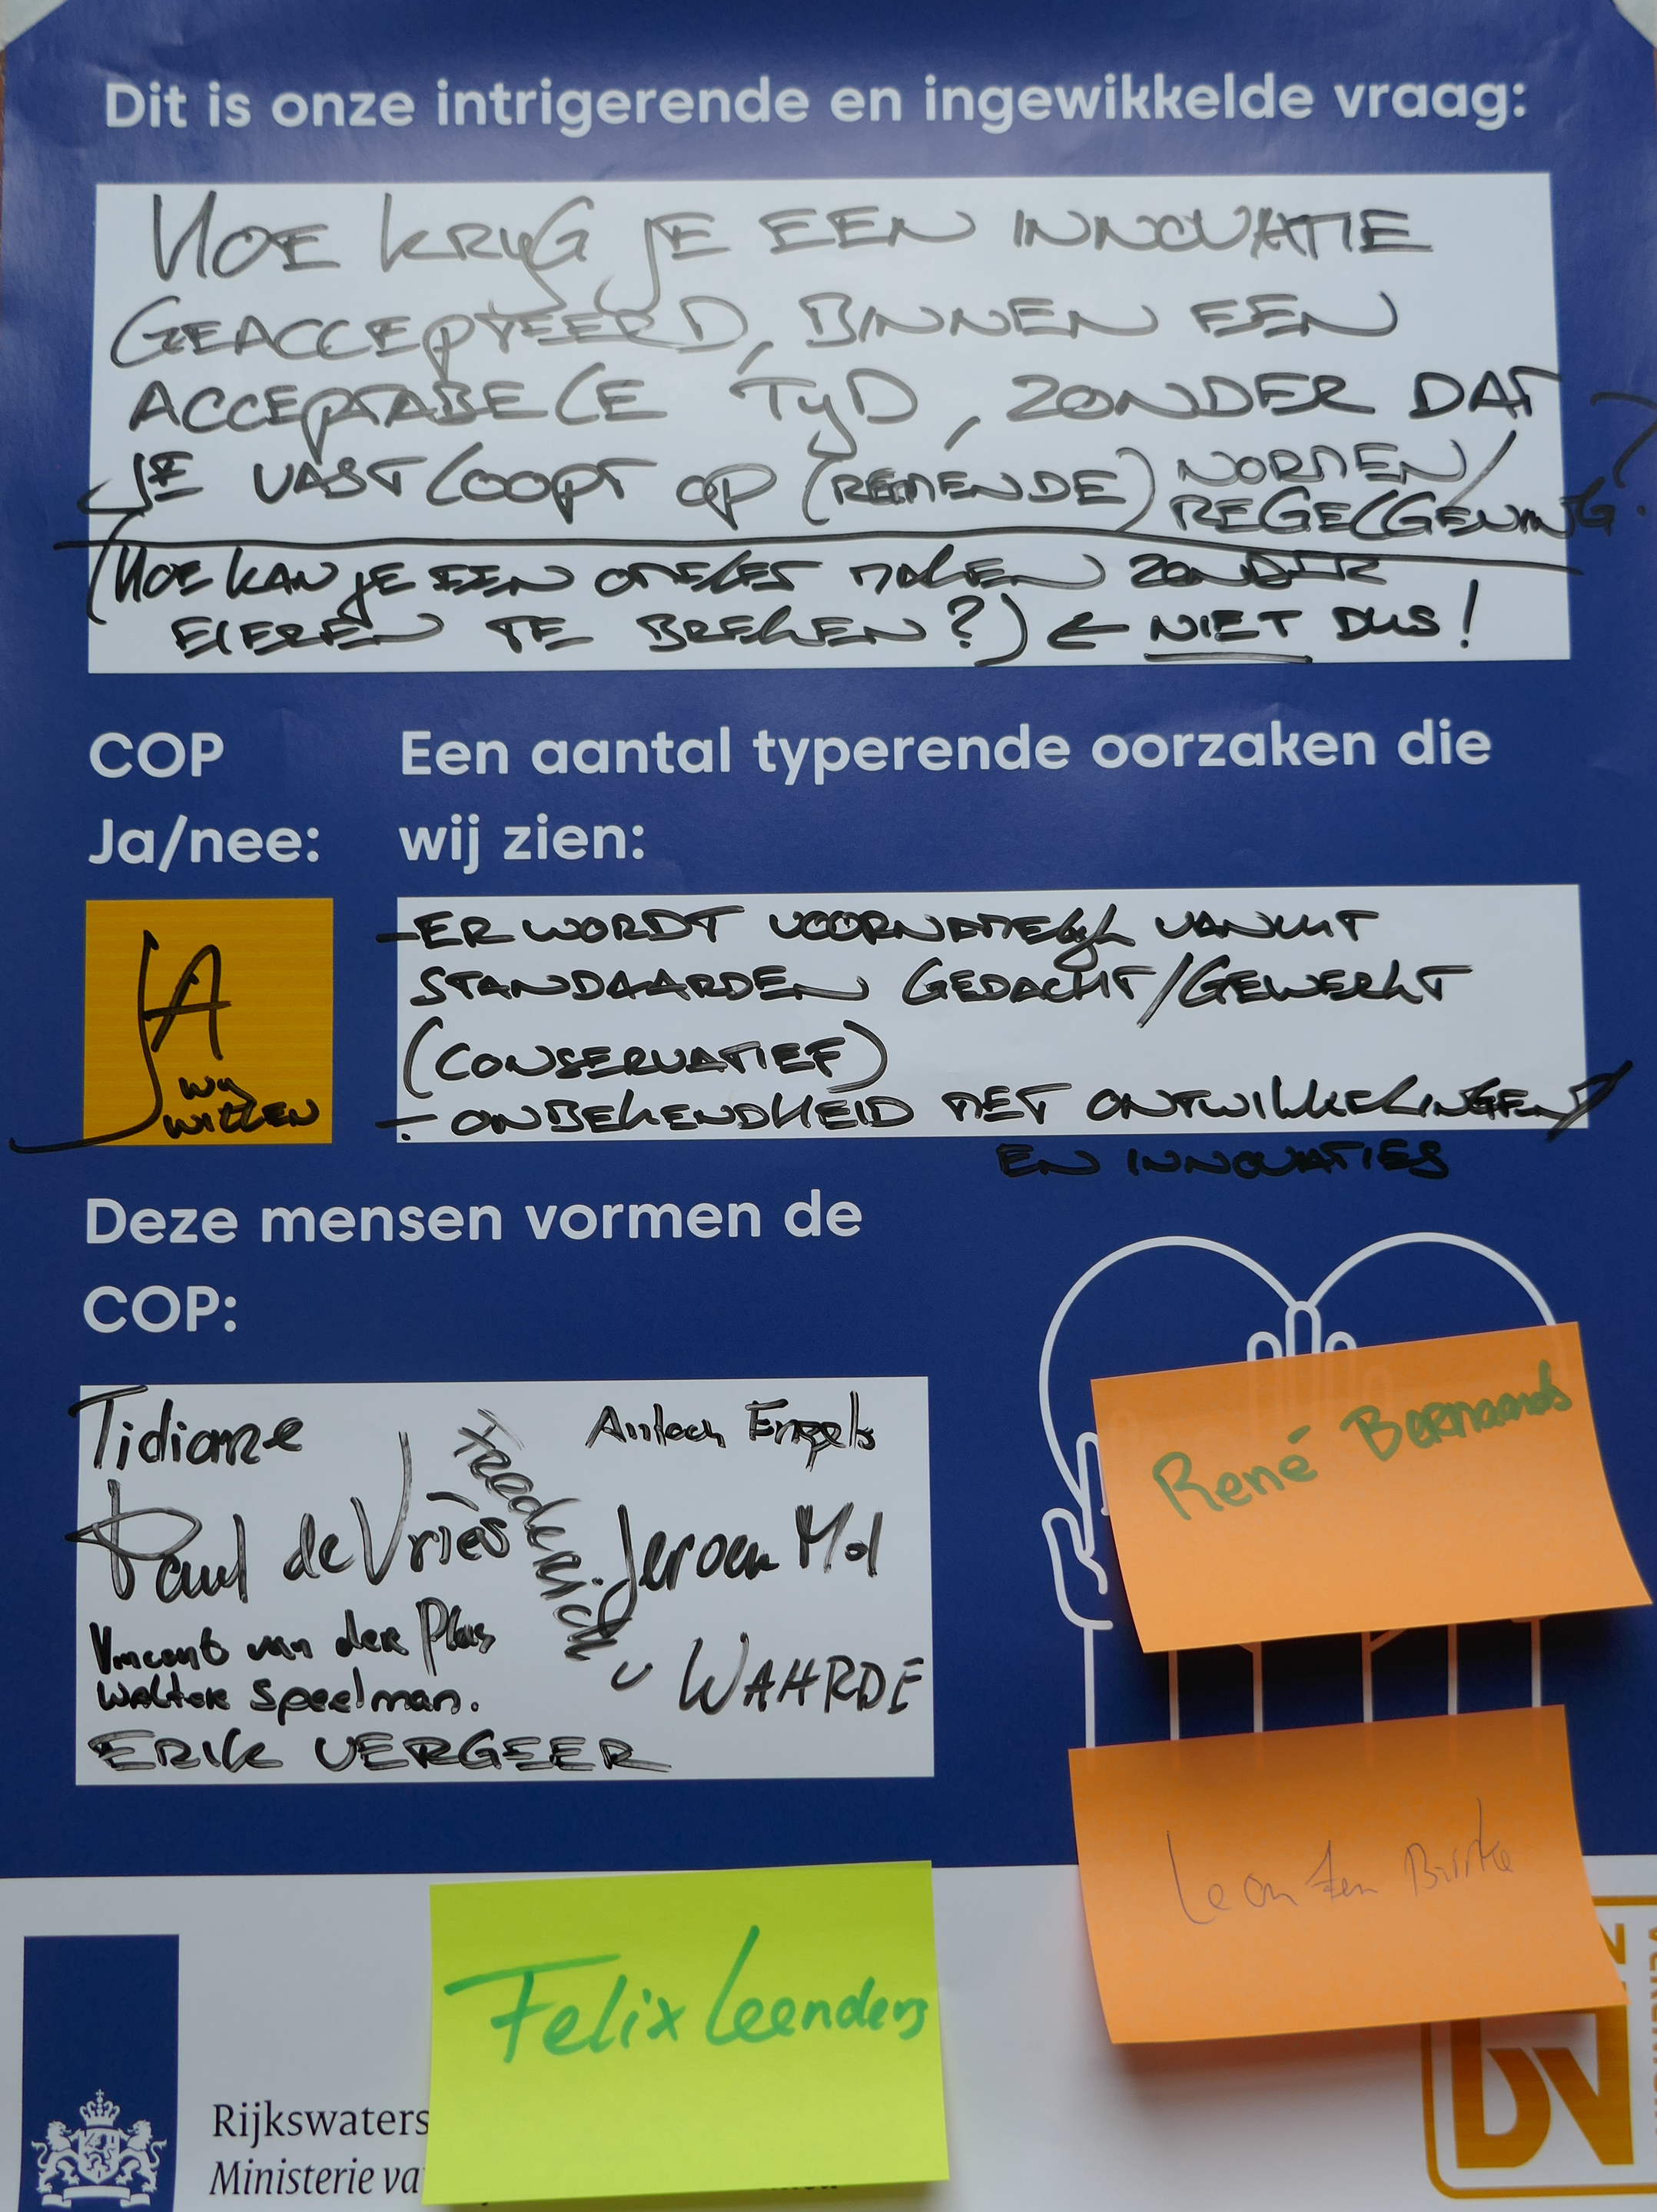 Dit is onze intrigerende en ingewikkelde vraag:
HOE KRIJG JE EEN INNOVATIE
GEACCEPTEERD, BINNEN EEN
ACCEPTABELE TIJD, ZONDER DAT
JE VASTLOOPT OP (REMENDE) NORMEN/
REGELGEVING?
(HOE KAN JE EEN OMELET MAKEN ZONDER
EIEREN TE BREKEN?) ← NIET DUS!
COP
Ja/nee:
JA
WIJ
WILLEN
Een aantal typerende oorzaken die
wij zien:
- ER WORDT VOORNAMELIJK VANUIT
STANDAARDEN GEDACHT/GEWERKT
(CONSERVATIEF)
- ONBEKENDHEID MET ONTWIKKELINGEN
EN INNOVATIES
Deze mensen vormen de
COP:
Tidiane
Engels
Paul de Vries
Jeroen Mol
Vincent van der Plas
Walter Speelman.
WAHRDE
ERIK VERGEER
René Bernaards
Leon ten Brinke
Felix Leenders
Rijkswaters
Ministerie va